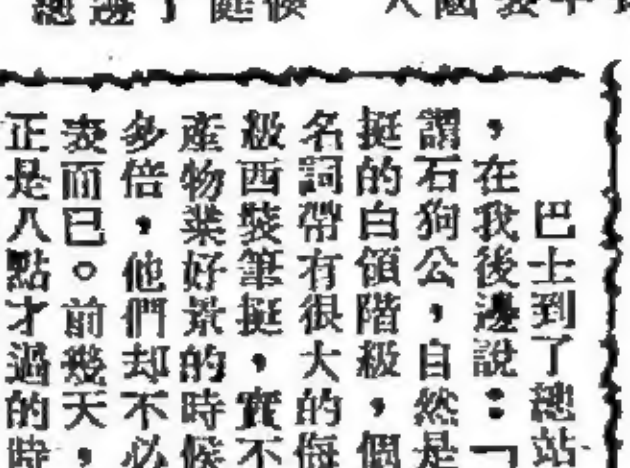 巴士到了總站
，在我後邊說：「
謂石狗公，自然是
挺的白領階級，個
名詞帶有很大的侮
級西裝筆挺，實不
產物業好景的時候
多倍，他們却不必
表而已。前幾天，
正是八點才過的時